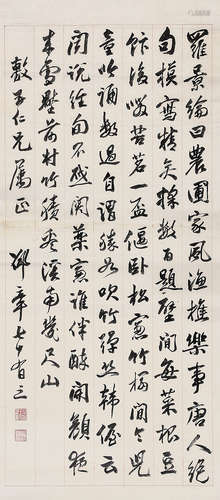 羅景綸曰農圃家風漁樵樂事唐人絕
句模寫精矣掇數百題壁間每菜根豆
飯後啜苦茗一盃偃臥松窻竹榻間令兒
童吟誦數過自謂勝如吹竹彈絲韓偓云
聞說經旬不啟關藥窻誰伴醉開顏夜
來雪壓前村竹賸看溪南幾尺山
仁兄屬正
邵章七十有三